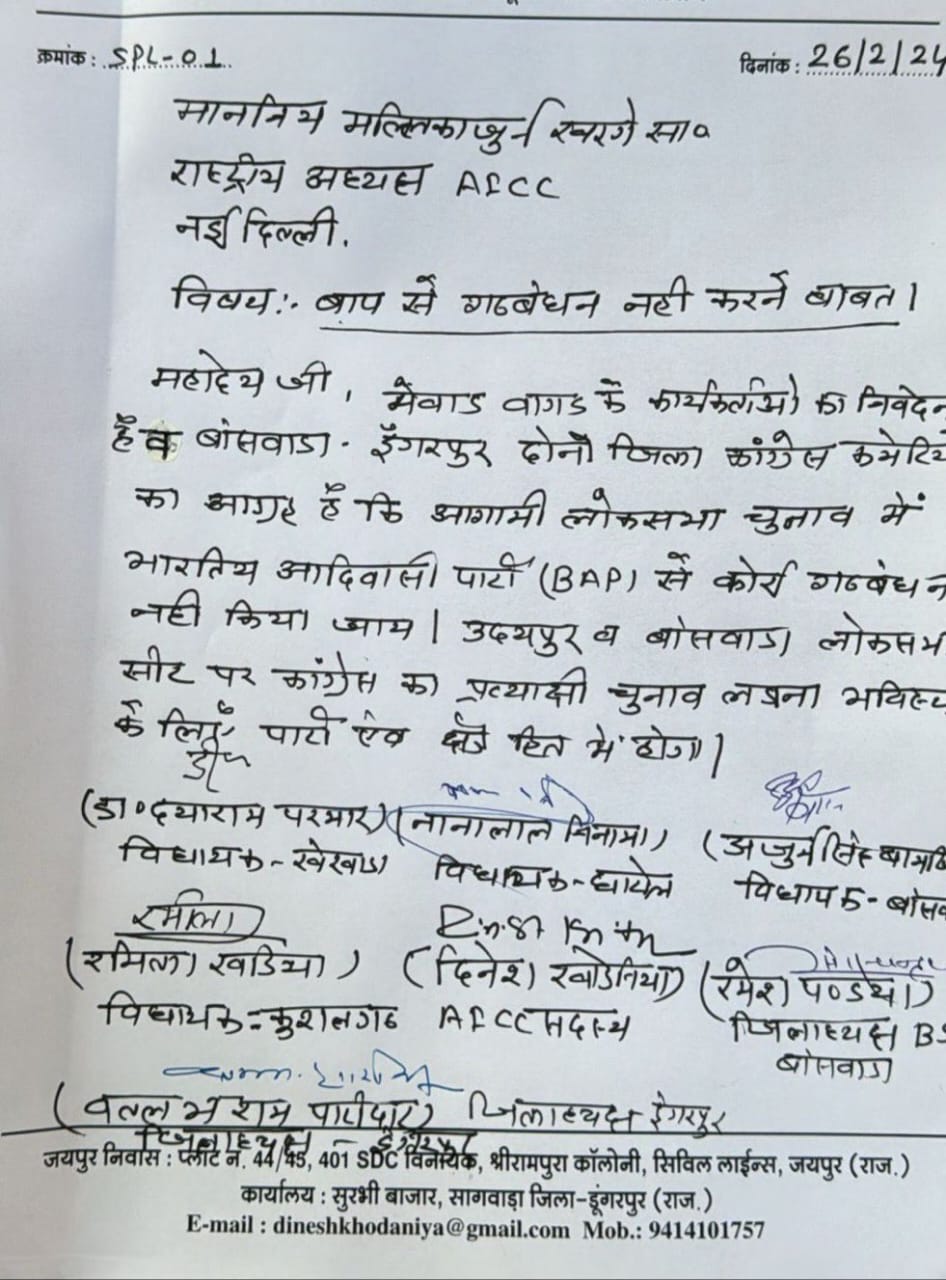 क्रमांक : SPL-01
दिनांक : 26/2/24
माननिय मल्लिकाजुर्न खरगे सा०
राष्ट्रीय अध्यक्ष AICC
नई दिल्ली.
विषय:- बाप से गठबंधन नही करने बाबत।
महादेय जी, मेवाड वागड के कार्यकर्ताओ का निवेदन
है व बांसवाडा - डूंगरपुर दोनो जिला कांग्रेस कमेटिय
का आग्रह है कि आगामी लोकसभा चुनाव में
भारतिय आदिवासी पार्टी (BAP) से कोई गठबंधन
नही किया जाय। उदयपुर व बांसवाडा लोकसभ
सीट पर कांग्रेस का प्रत्याक्षी चुनाव लडना भविष्य
के लिएँ पार्टी एंव क्षेत्र हित में होगा।
(डा० दयाराम परमार) (नानालाल निनामा) (अजुर्नसिंह बामनि
विधायक - खेरवाडा विधायक - घाटोल विधायक - बांसव
रमीला
(रमिला खडिया) (दिनेश खोडनिया) (रमेश पण्डया)
विधायक - कुशलगढ AICC सदस्य जिलाध्यक्ष
बांसवाडा
(वल्लभ राम पाटीदार) जिलाध्यक्ष डूंगरपुर
जिलाध्यक्ष - डूंगरपुर
जयपुर निवास : प्लॉट नं. 44/45, 401 SDC विनायक, श्रीरामपुरा कॉलोनी, सिविल लाईन्स, जयपुर (राज.)
कार्यालय : सुरभी बाजार, सागवाड़ा जिला-डूंगरपुर (राज.)
E-mail : dineshkhodaniya@gmail.com Mob.: 9414101757